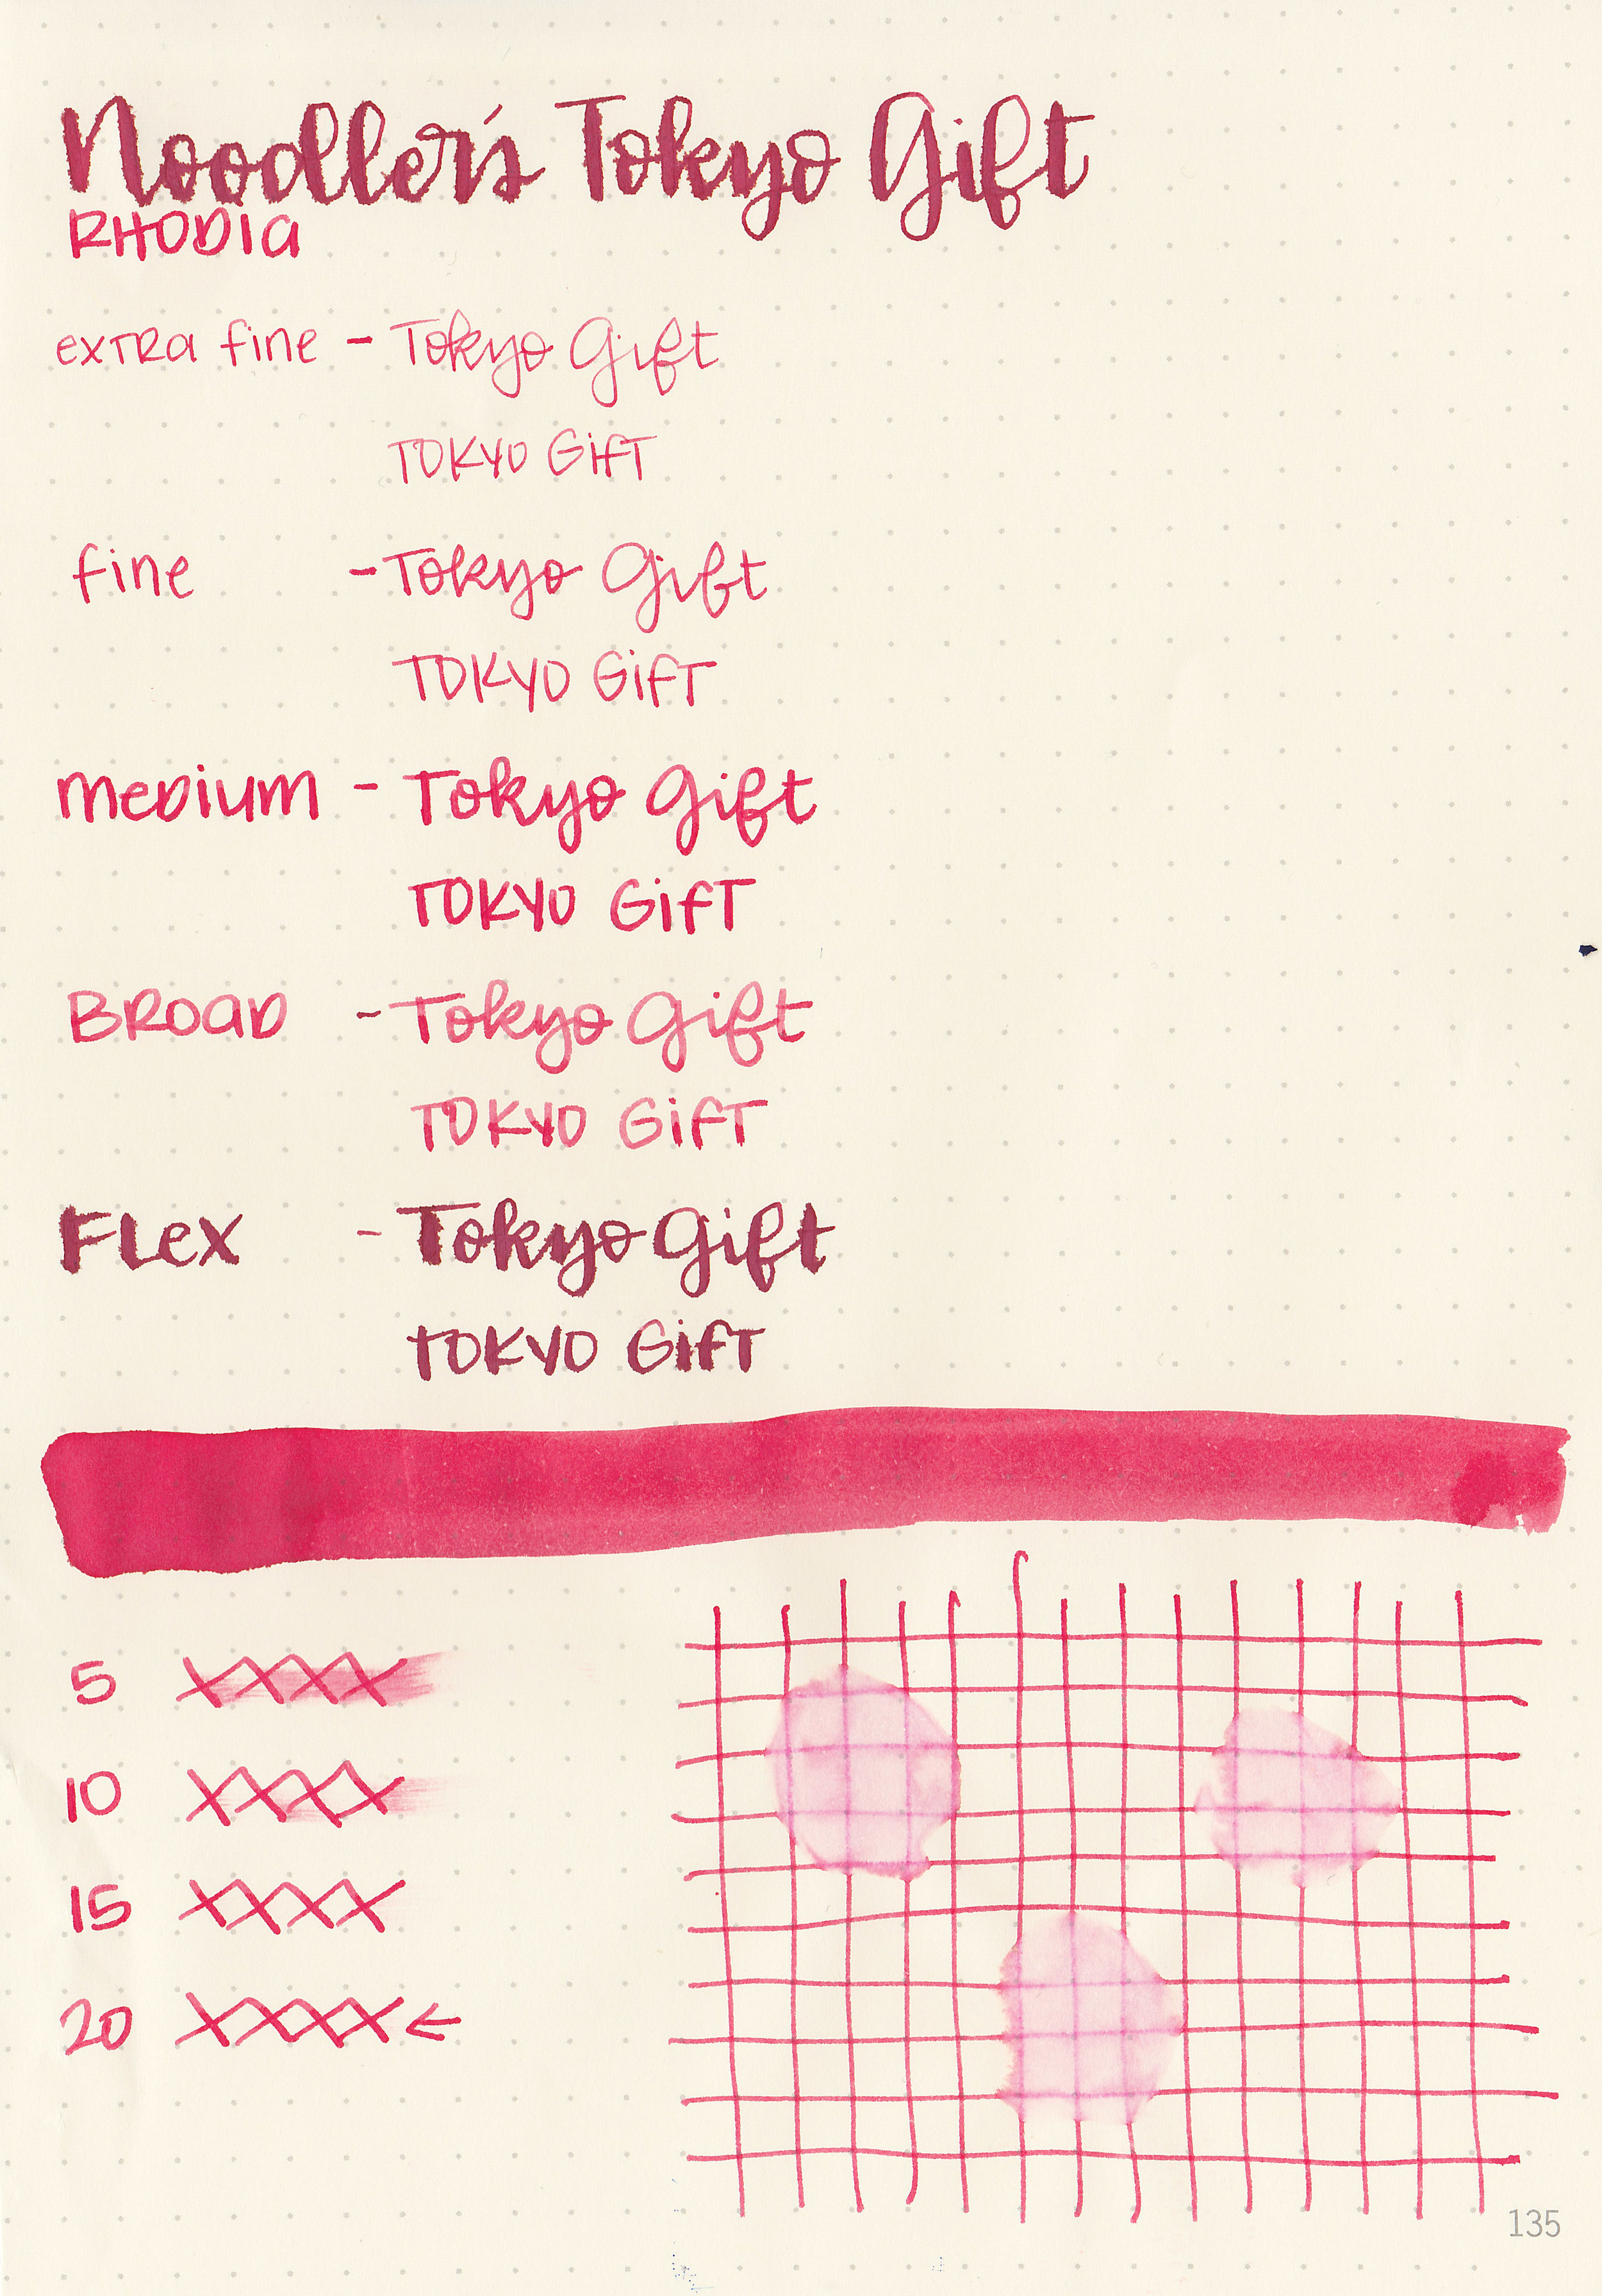 Noodler's Tokyo Gift
RHODIA
extra fine - Tokyo Gift
TOKYO GIFT
fine - Tokyo Gift
TOKYO GIFT
medium - Tokyo Gift
TOKYO GIFT
BROAD - Tokyo Gift
TOKYO GIFT
Flex - Tokyo Gift
TOKYO GIFT
5 XXXX
10 XXXX
15 XXXX
20 XXXX ←
135